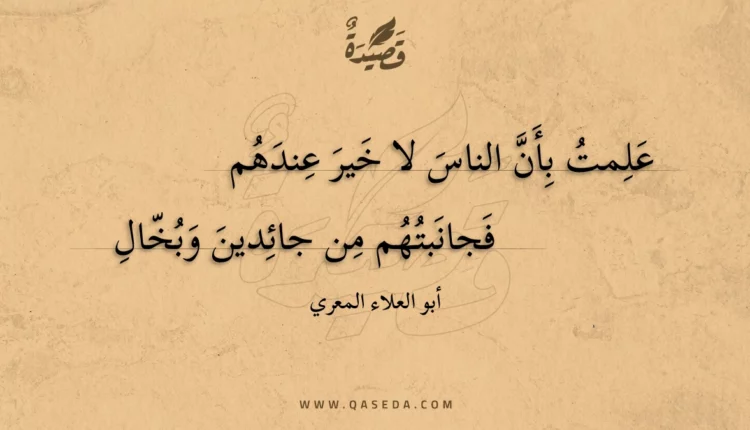 قَصِيدَةٌ
عَلِمتُ بِأَنَّ الناسَ لا خَيرَ عِندَهُم
فَجانَبتُهُم مِن جائِدينَ وَبُخّالِ
أبو العلاء المعري
WWW.QASEDA.COM